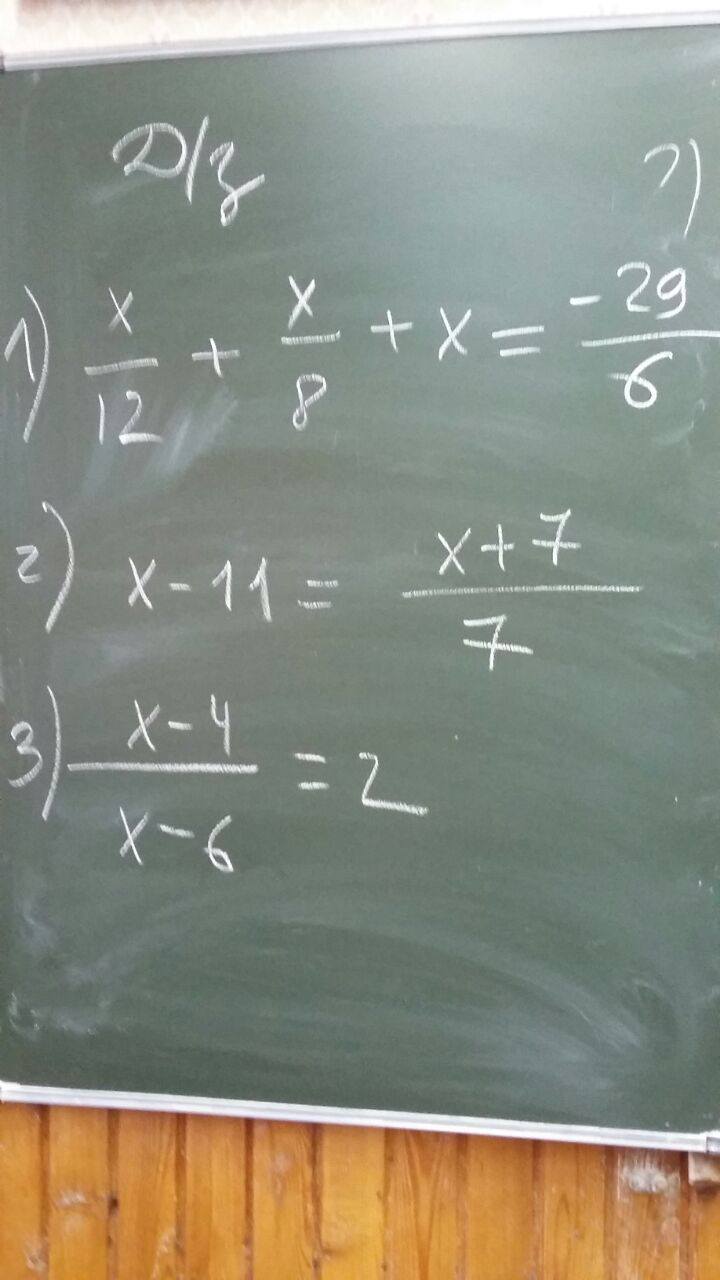 Д/з
?)
1) x/12 + x/8 + x = -29/6
2) x - 11 = x+7/7
3) x-4/x-6 = 2